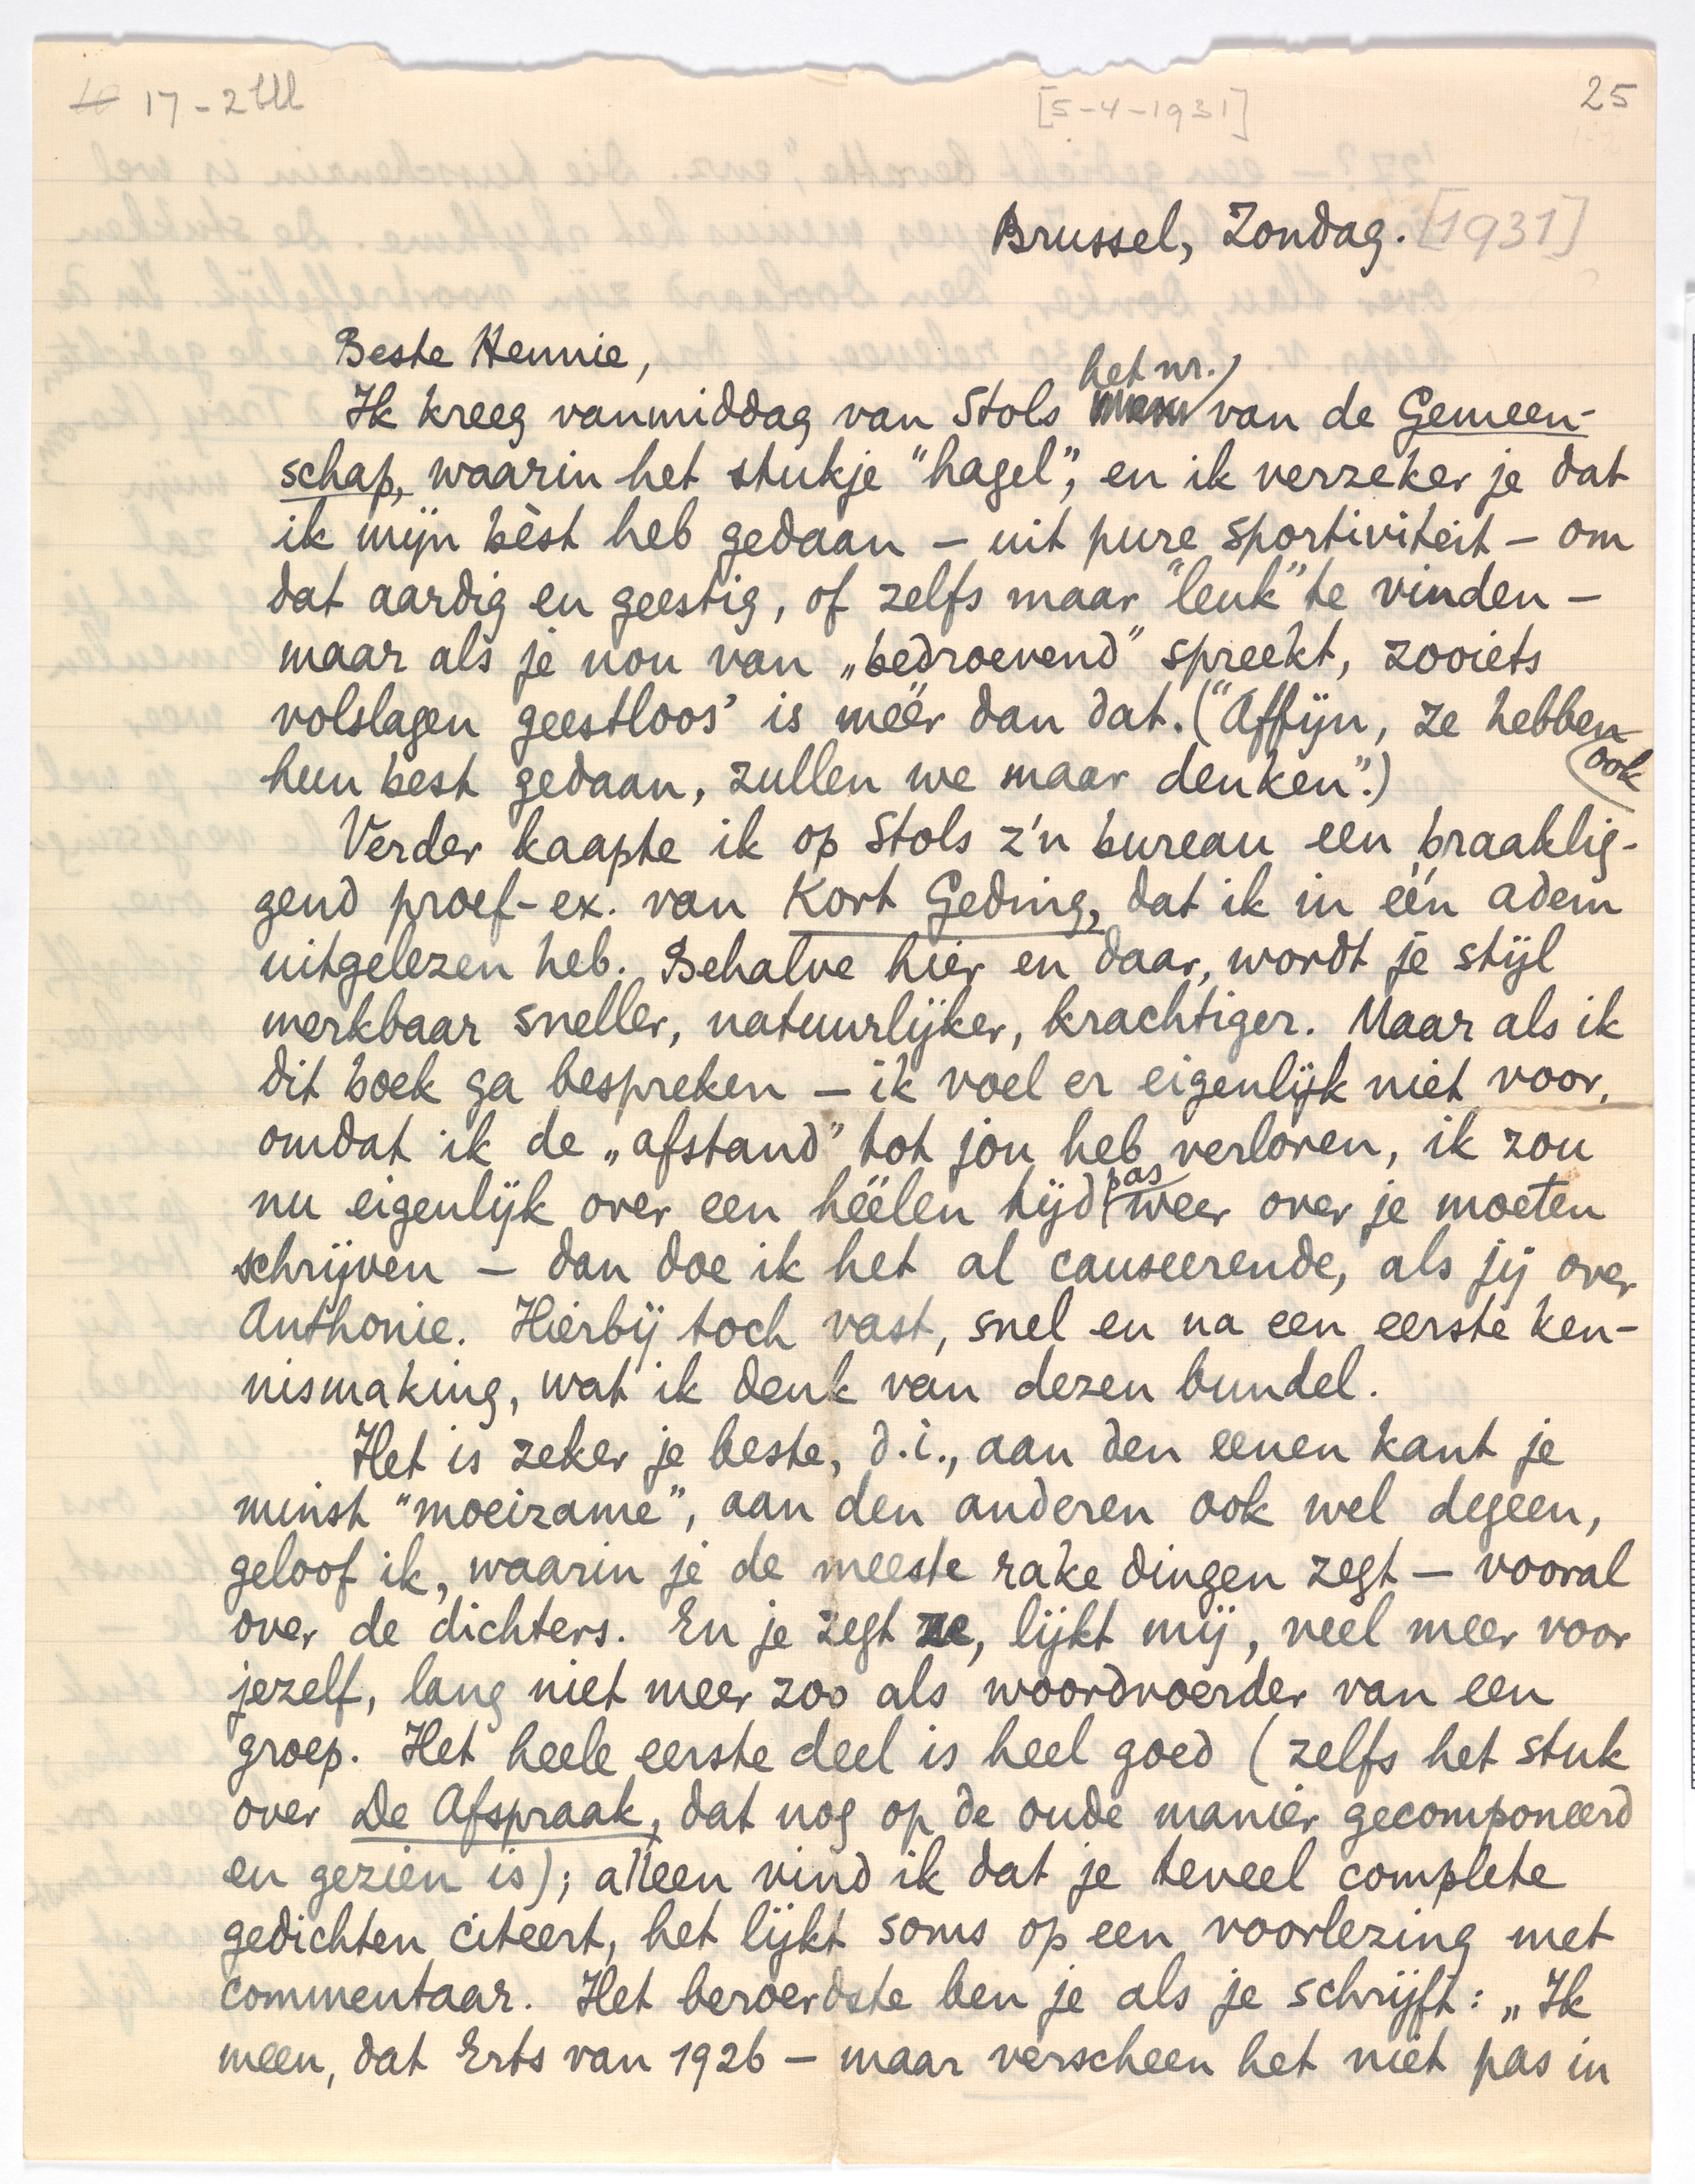 17-2
[5-4-1931]
25
Brussel, Zondag. [1931]
Beste Hennie,
Ik kreeg vanmiddag van Stols het nr. van de Gemeen-
schap, waarin het stukje "hagel", en ik verzeker je dat
ik mijn bèst heb gedaan – uit pure sportiviteit – om
dat aardig en geestig, of zelfs maar "leuk" te vinden –
maar als je nou van „bedroevend" spreekt, zooiets
volslagen geestloos' is méér dan dat. ("Affijn, ze hebben ook
hun best gedaan, zullen we maar denken".)
Verder kaapte ik op Stols z'n bureau een braaklig-
gend proef-ex. van Kort Geding, dat ik in één adem
uitgelezen heb. Behalve hier en daar, wordt je stijl
merkbaar sneller, natuurlijker, krachtiger. Maar als ik
dit boek ga bespreken – ik voel er eigenlijk niet voor,
omdat ik de „afstand" tot jou heb verloren, ik zou
nu eigenlijk over een héélen tijd pas weer over je moeten
schrijven – dan doe ik het al causeerende, als jij over
Anthonie. Hierbij toch vast, snel en na een eerste ken-
nismaking, wat ik denk van dezen bundel.
Het is zeker je beste, d.i., aan den eenen kant je
minst "moeizame", aan den anderen ook wel degeen,
geloof ik, waarin je de meeste rake dingen zegt – vooral
over de dichters. En je zegt ze, lijkt mij, veel meer voor
jezelf, lang niet meer zoo als woordvoerder van een
groep. Het heele eerste deel is heel goed (zelfs het stuk
over De Afspraak, dat nog op de oude manier gecomponeerd
en gezien is); alleen vind ik dat je teveel complete
gedichten citeert, het lijkt soms op een voorlezing met
commentaar. Het beroerdste ben je als je schrijft: „Ik
meen, dat Erts van 1926 – maar verscheen het niet pas in